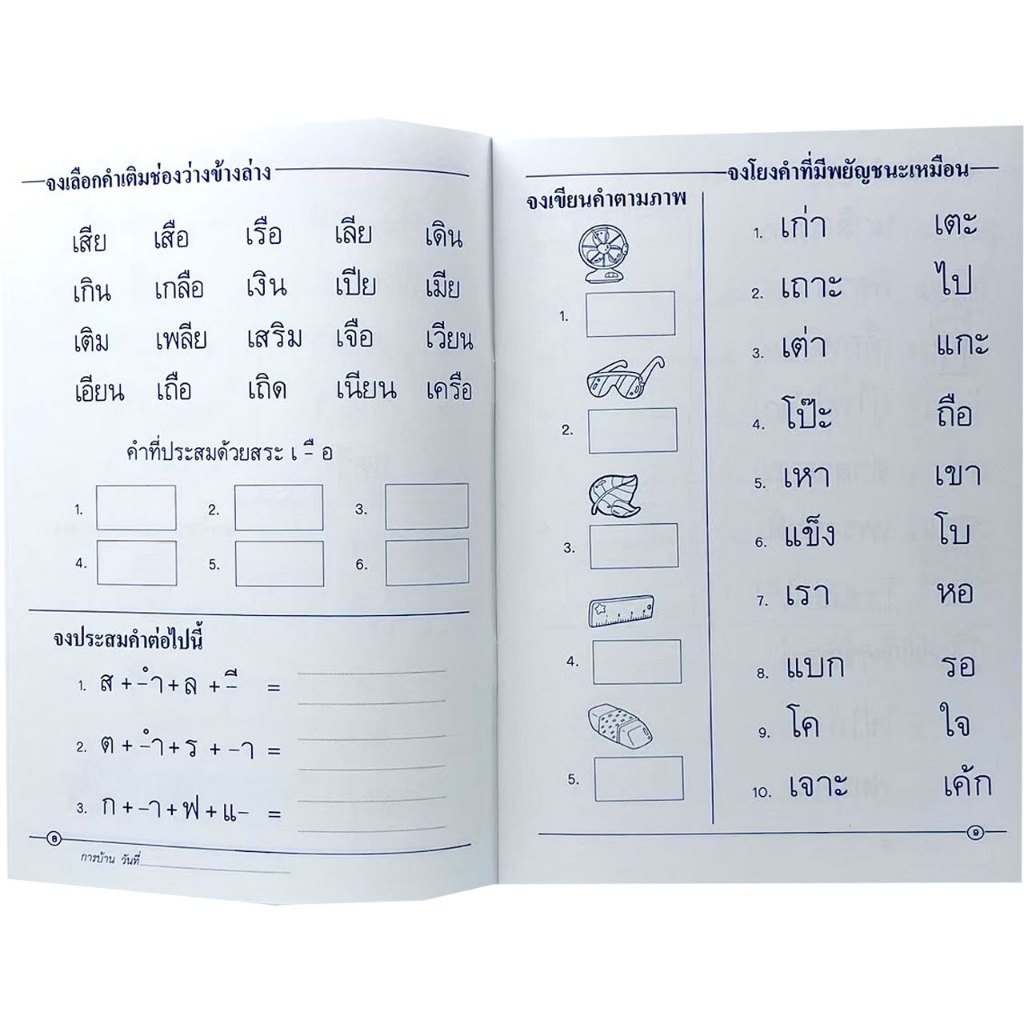 จงเลือกคำเติมช่องว่างข้างล่าง
เสีย เสือ เรือ เลีย เดิน
เกิน เกลือ เงิน เปีย เมีย
เติม เพลีย เสริม เจือ เวียน
เอียน เถือ เถิด เนียน เครือ
คำที่ประสมด้วยสระ เ -ื อ
1. 2. 3.
4. 5. 6.
จงประสมคำต่อไปนี้
1. ส + -ำ + ล + -ี =
2. ต + -ำ + ร + -า =
3. ก + -า + ฟ + แ- =
๘
การบ้าน วันที่
จงเขียนคำตามภาพ
1.
2.
3.
4.
5.
จงโยงคำที่มีพยัญชนะเหมือน
1. เก่า เตะ
2. เถาะ ไป
3. เต่า แกะ
4. โป๊ะ ถือ
5. เหา เขา
6. แข็ง โบ
7. เรา หอ
8. แบก รอ
9. โค ใจ
10. เจาะ เค้ก
๙